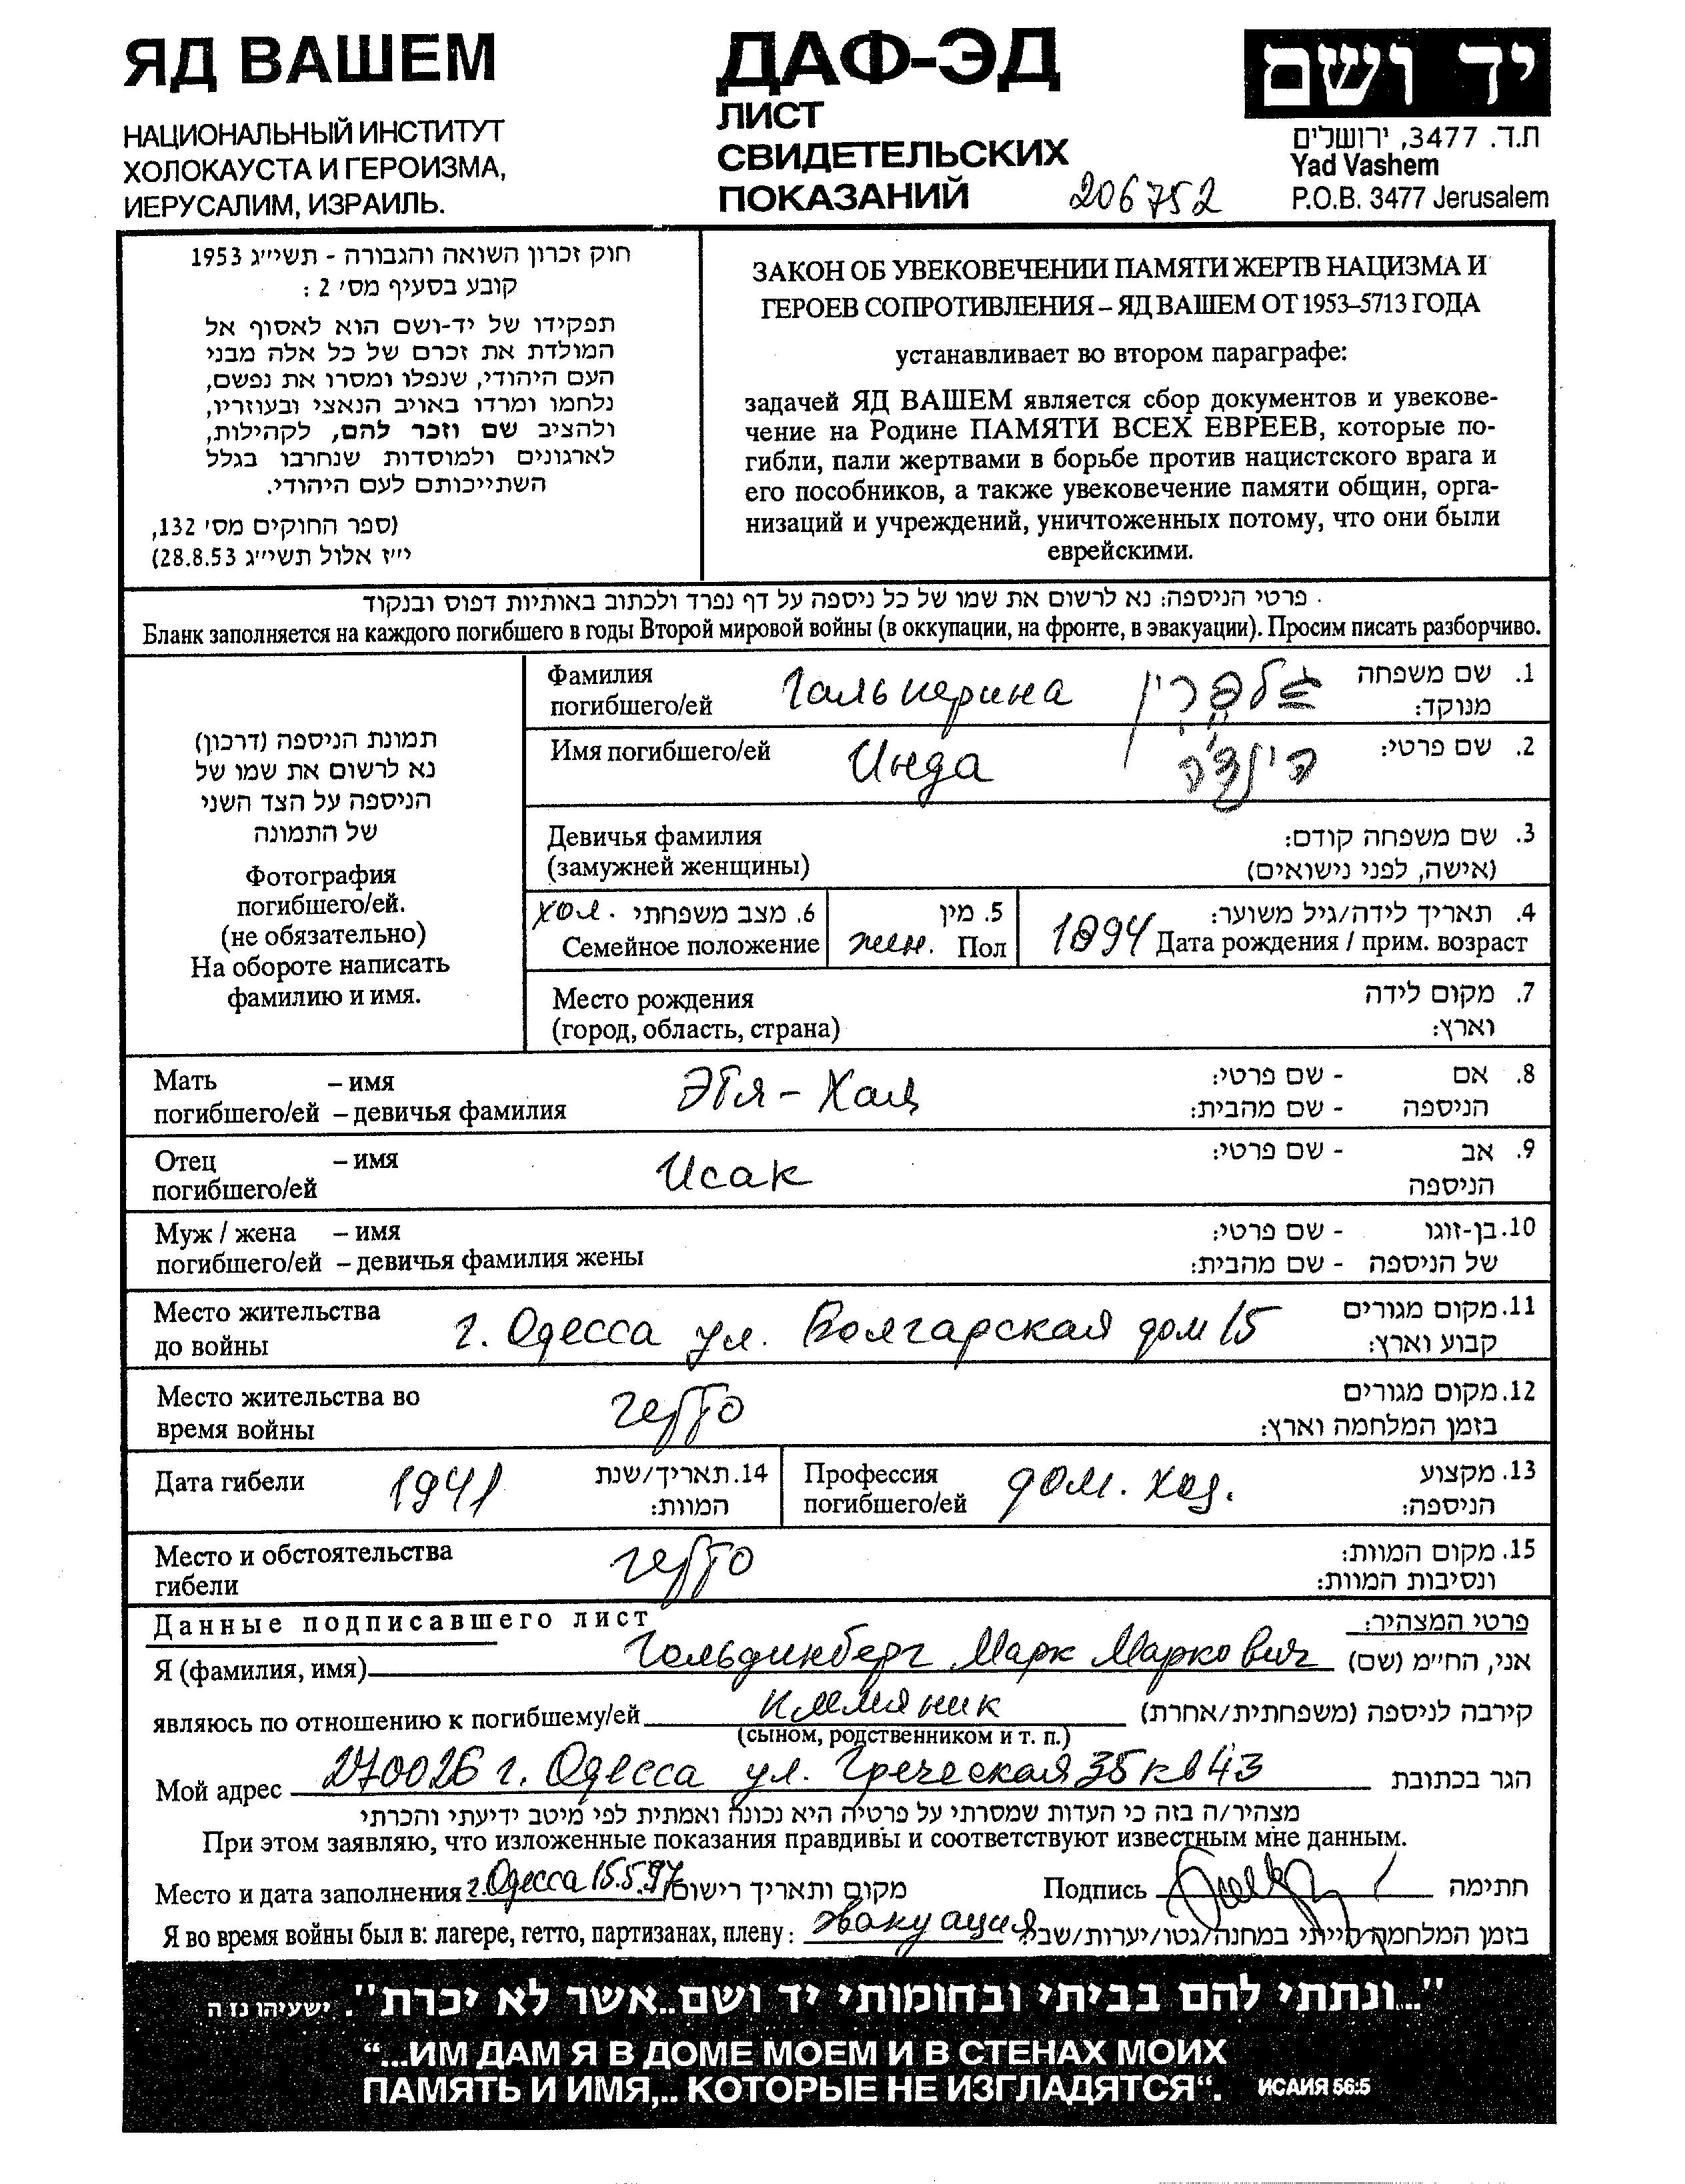 ЯД ВАШЕМ
НАЦИОНАЛЬНЫЙ ИНСТИТУТ
ХОЛОКАУСТА И ГЕРОИЗМА,
ИЕРУСАЛИМ, ИЗРАИЛЬ.
ДАФ-ЭД
ЛИСТ
СВИДЕТЕЛЬСКИХ
ПОКАЗАНИЙ 206752
יד ושם
ת.ד. 3477, ירושלים
Yad Vashem
P.O.B. 3477 Jerusalem
חוק זכרון השואה והגבורה - תשי״ג 1953
קובע בסעיף מס׳ 2 :
תפקידו של יד-ושם הוא לאסוף אל
המולדת את זכרם של כל אלה מבני
העם היהודי, שנפלו ומסרו את נפשם,
נלחמו ומרדו באויב הנאצי ובעוזריו,
ולהציב שם וזכר להם, לקהילות,
לארגונים ולמוסדות שנחרבו בגלל
השתייכותם לעם היהודי.
(ספר החוקים מס׳ 132,
י״ז אלול תשי״ג 28.8.53)
ЗАКОН ОБ УВЕКОВЕЧЕНИИ ПАМЯТИ ЖЕРТВ НАЦИЗМА И
ГЕРОЕВ СОПРОТИВЛЕНИЯ – ЯД ВАШЕМ ОТ 1953–5713 ГОДА
устанавливает во втором параграфе:
задачей ЯД ВАШЕМ является сбор документов и увекове-
чение на Родине ПАМЯТИ ВСЕХ ЕВРЕЕВ, которые по-
гибли, пали жертвами в борьбе против нацистского врага и
его пособников, а также увековечение памяти общин, орга-
низаций и учреждений, уничтоженных потому, что они были
еврейскими.
פרטי הניספה: נא לרשום את שמו של כל ניספה על דף נפרד ולכתוב באותיות דפוס ובנקוד
Бланк заполняется на каждого погибшего в годы Второй мировой войны (в оккупации, на фронте, в эвакуации). Просим писать разборчиво.
תמונת הניספה (דרכון)
נא לרשום את שמו של
הניספה על הצד השני
של התמונה
Фотография
погибшего/ей.
(не обязательно)
На обороте написать
фамилию и имя.
Фамилия
погибшего/ей Гальперина גלפרין
1. שם משפחה
מנוקד:
Имя погибшего/ей Инда הינדה 2. שם פרטי:
Девичья фамилия 3. שם משפחה קודם:
(замужней женщины) (אישה, לפני נישואים)
хол. 6. מצב משפחתי
Семейное положение
5. מין
жен. Пол
4. תאריך לידה/גיל משוער:
1894 Дата рождения / прим. возраст
Место рождения 7. מקום לידה
(город, область, страна) וארץ:
Мать – имя Этя-Хая 8. אם - שם פרטי:
погибшего/ей – девичья фамилия הניספה - שם מהבית:
Отец – имя Исак 9. אב - שם פרטי:
погибшего/ей הניספה
Муж / жена – имя 10. בן-זוגו - שם פרטי:
погибшего/ей – девичья фамилия жены של הניספה - שם מהבית:
Место жительства г. Одесса ул. Болгарская дом 15 11. מקום מגורים
до войны קבוע וארץ:
Место жительства во гетто 12. מקום מגורים
время войны בזמן המלחמה וארץ:
Дата гибели 1941 14. תאריך/שנת
המוות:
Профессия дом. хоз. 13. מקצוע
погибшего/ей הניספה:
Место и обстоятельства гетто 15. מקום המוות:
гибели ונסיבות המוות:
Данные подписавшего лист פרטי המצהיר:
Я (фамилия, имя) Гольдинберг Марк Маркович אני, הח״מ (שם)
являюсь по отношению к погибшему/ей племяник קירבה לניספה (משפחתית/אחרת)
(сыном, родственником и т. п.)
Мой адрес 270026 г. Одесса ул. Греческая 35 кв 43 הגר בכתובת
מצהיר/ה בזה כי העדות שמסרתי על פרטיה היא נכונה ואמתית לפי מיטב ידיעתי והכרתי
При этом заявляю, что изложенные показания правдивы и соответствуют известным мне данным.
Место и дата заполнения г. Одесса 15.5.97 מקום ותאריך רישום Подпись חתימה
Я во время войны был в: лагере, гетто, партизанах, плену: эвакуация בזמן המלחמה הייתי במחנה/גטו/יערות/שבי
"...ונתתי להם בביתי ובחומותי יד ושם..אשר לא יכרת". ישעיהו נו ה
“...ИМ ДАМ Я В ДОМЕ МОЕМ И В СТЕНАХ МОИХ
ПАМЯТЬ И ИМЯ,.. КОТОРЫЕ НЕ ИЗГЛАДЯТСЯ“. ИСАИЯ 56:5